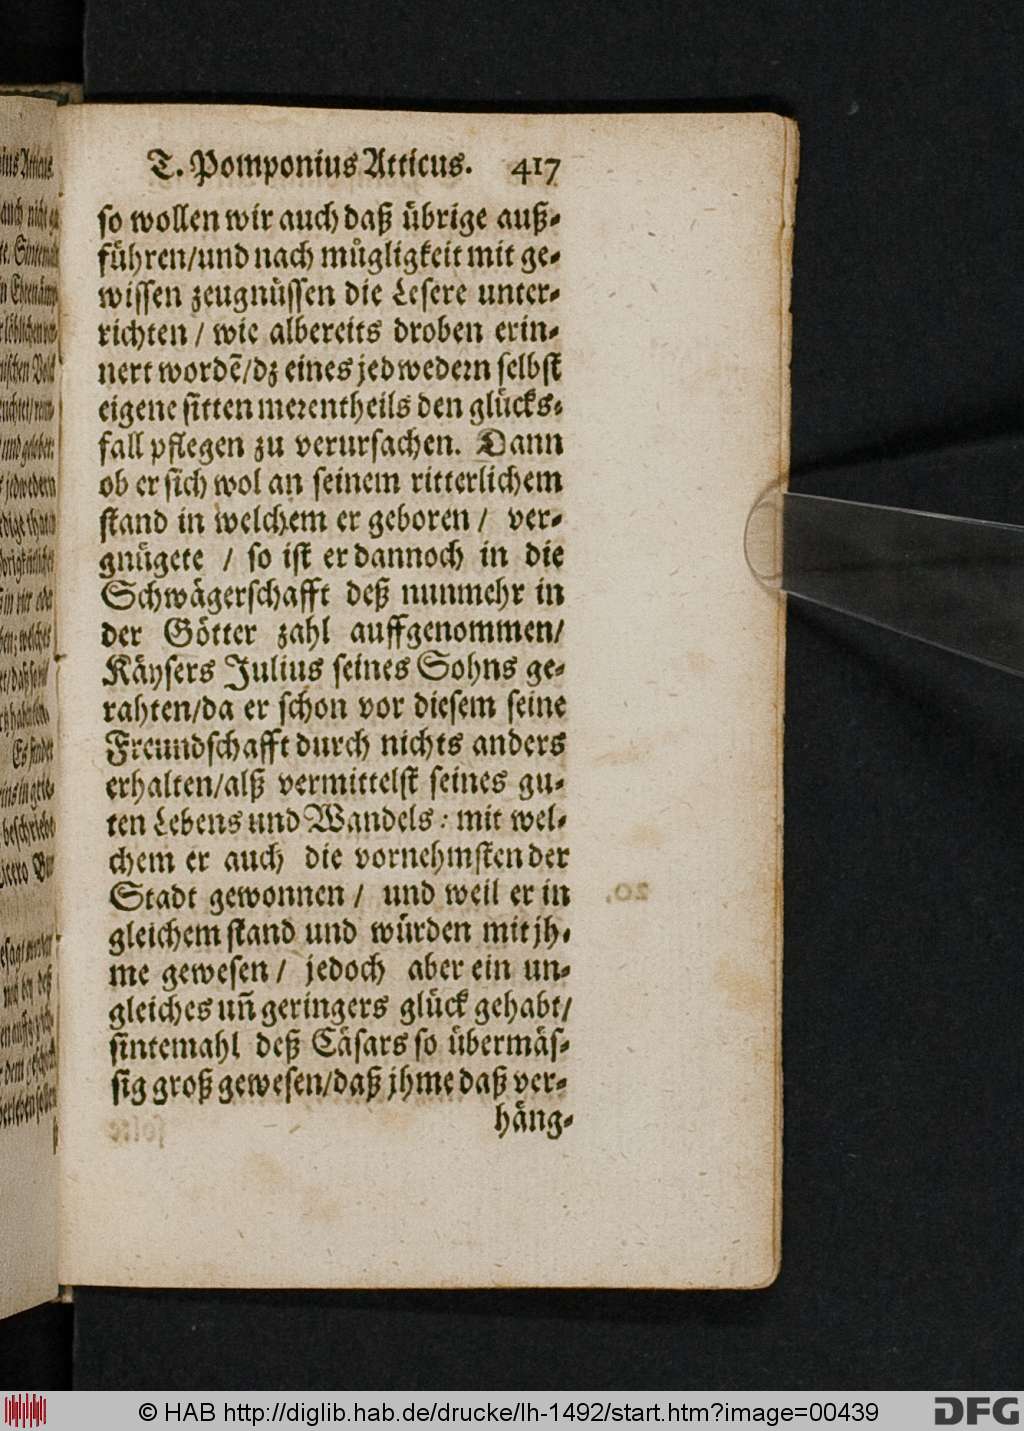 T. Pomponius Atticus. 417
so wollen wir auch daß übrige auß-
führen/und nach můgligkeit mit ge-
wissen zeugnüssen die Lesere unter-
richten / wie albereits droben erin-
nert wordẽ/dz eines jedwedern selbst
eigene sitten merentheils den glücks-
fall pflegen zu verursachen. Dann
ob er sich wol an seinem ritterlichem
stand in welchem er geboren / ver-
gnügete / so ist er dannoch in die
Schwägerschafft deß nunmehr in
der Götter zahl auffgenommen/
Käysers Julius seines Sohns ge-
rahten/da er schon vor diesem seine
Freundschafft durch nichts anders
erhalten/alß vermittelst seines gu-
ten Lebens und Wandels: mit wel-
chem er auch die vornehmsten der
Stadt gewonnen / und weil er in
gleichem stand und würden mit jh-
me gewesen / jedoch aber ein un-
gleiches uñ geringers glück gehabt/
sintemahl deß Cäsars so übermäs-
sig groß gewesen/daß jhme daß ver-
häng-
© HAB http://diglib.hab.de/drucke/lh-1492/start.htm?image=00439
DFG